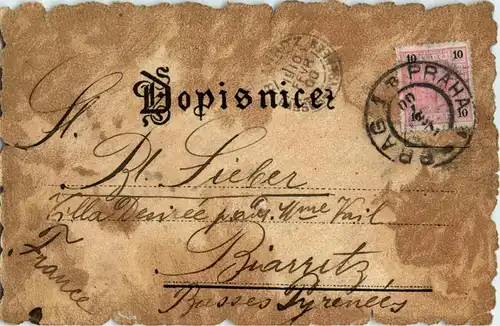 Dopisnice
10 10
10 10
PRAG 1 PRAHA
St.
Bt. Sieber
Villa Désirée pour Mme Vail
Biarritz
Basses Pyrenées
France